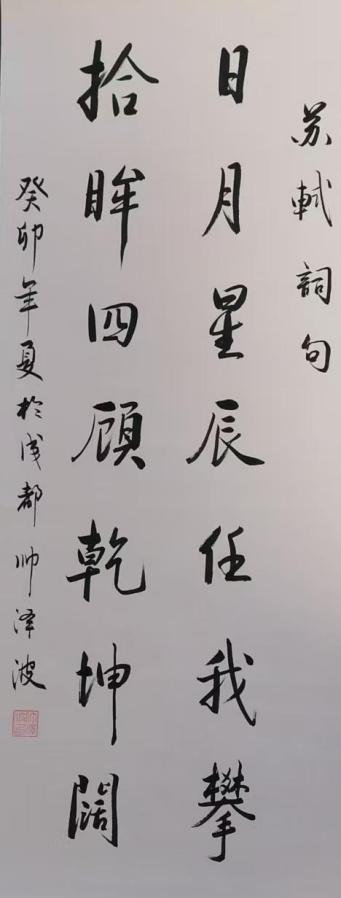 苏轼詞句
日月星辰任我攀
拾眸四顾乾坤阔
癸卯年夏於成都帅泽波